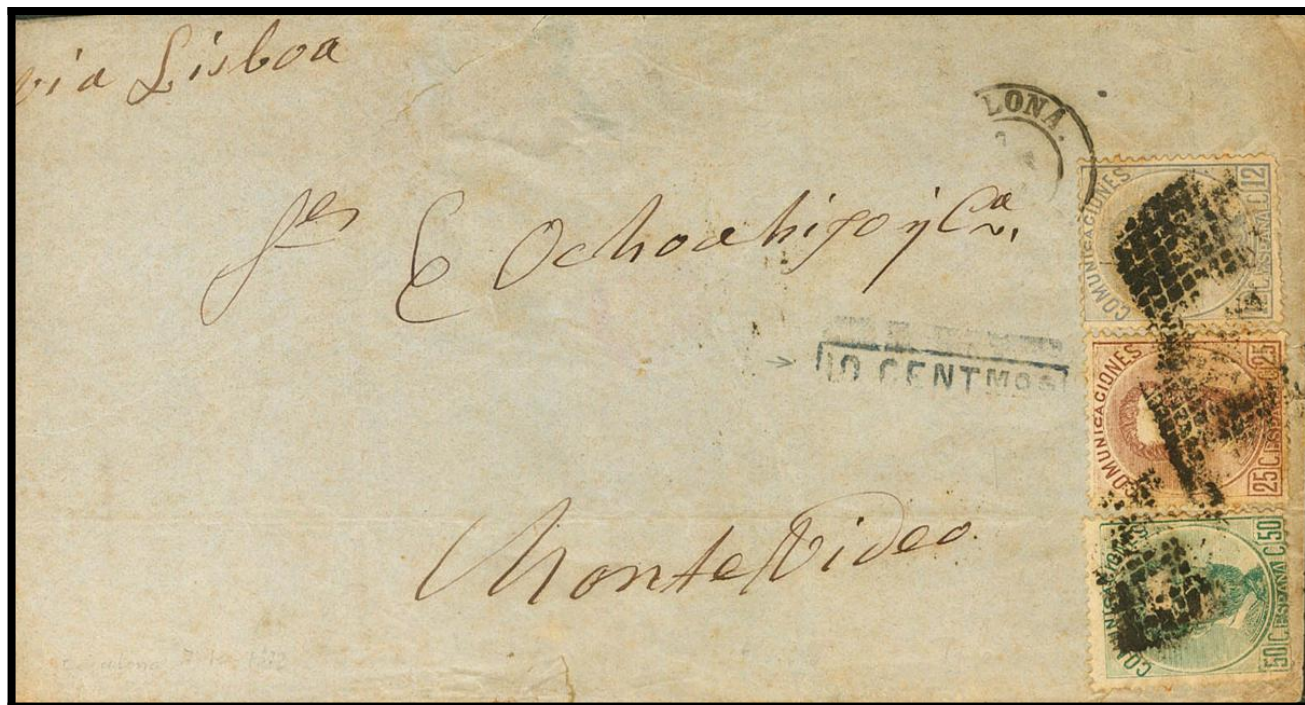 via Lisboa
LONA.
Sres E Ochoa hijo y Ca.
10 CENTMOS
Montevideo
COMUNICACIONES
12 C ESPAÑA C 12
COMUNICACIONES
25 C. ESPAÑA C 25
50 C. ESPAÑA C 50